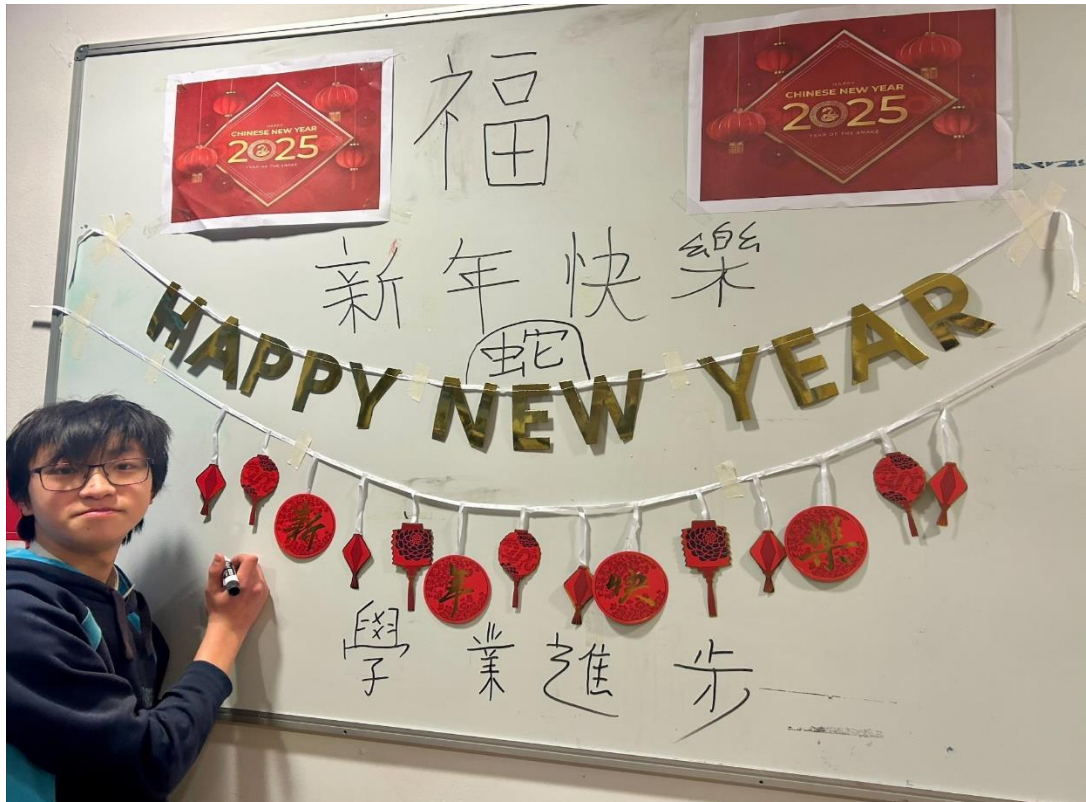 福
HAPPY
CHINESE NEW YEAR
2025
YEAR OF THE SNAKE
HAPPY
CHINESE NEW YEAR
2025
YEAR OF THE SNAKE
新年快樂
蛇
HAPPY NEW YEAR
新年快樂
學業進步